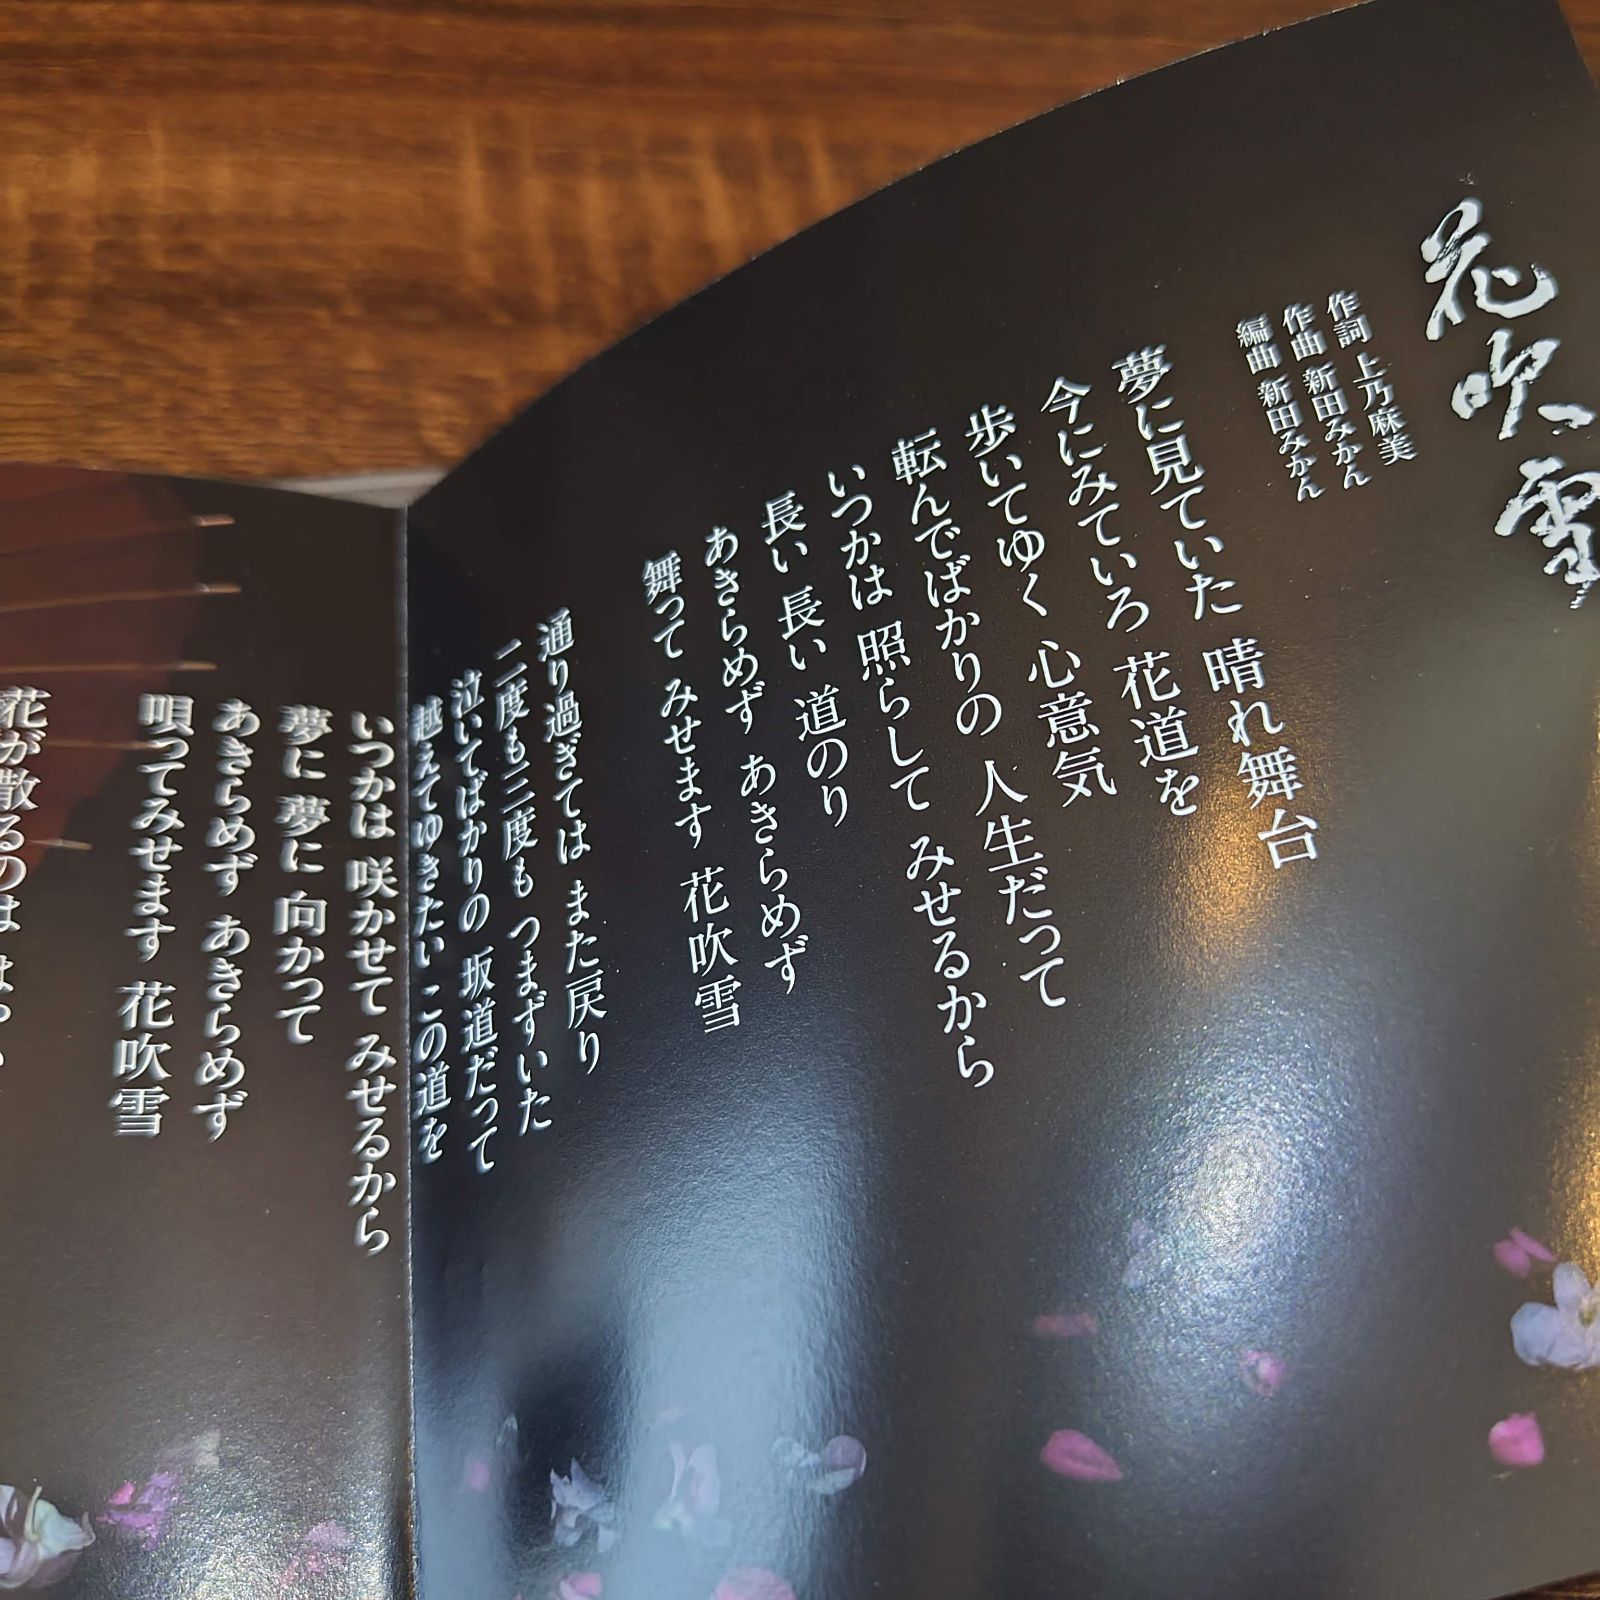 花吹雪
作詞 上乃麻美
作曲 新田みかん
編曲 新田みかん
夢に見ていた 晴れ舞台
今にみていろ 花道を
歩いてゆく 心意気
転んでばかりの 人生だって
いつかは 照らして みせるから
長い 長い 道のり
あきらめず あきらめず
舞って みせます 花吹雪
通り過ぎては また戻り
二度も三度も つまずいた
泣いてばかりの 坂道だって
越えてゆきたい この道を
いつかは 咲かせて みせるから
夢に 夢に 向かって
あきらめず あきらめず
唄ってみせます 花吹雪
花が散るのは